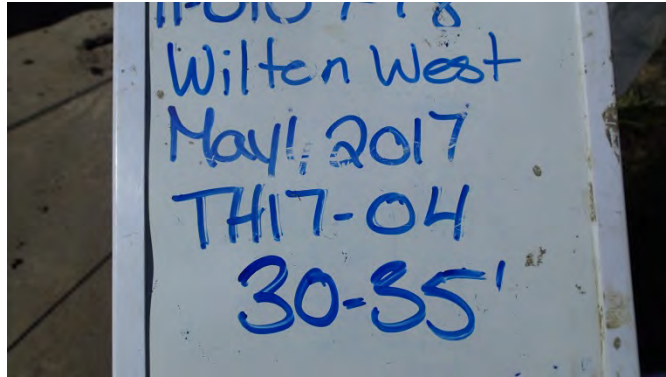 Wilten West
May 1, 2017
TH17-04
30-35'